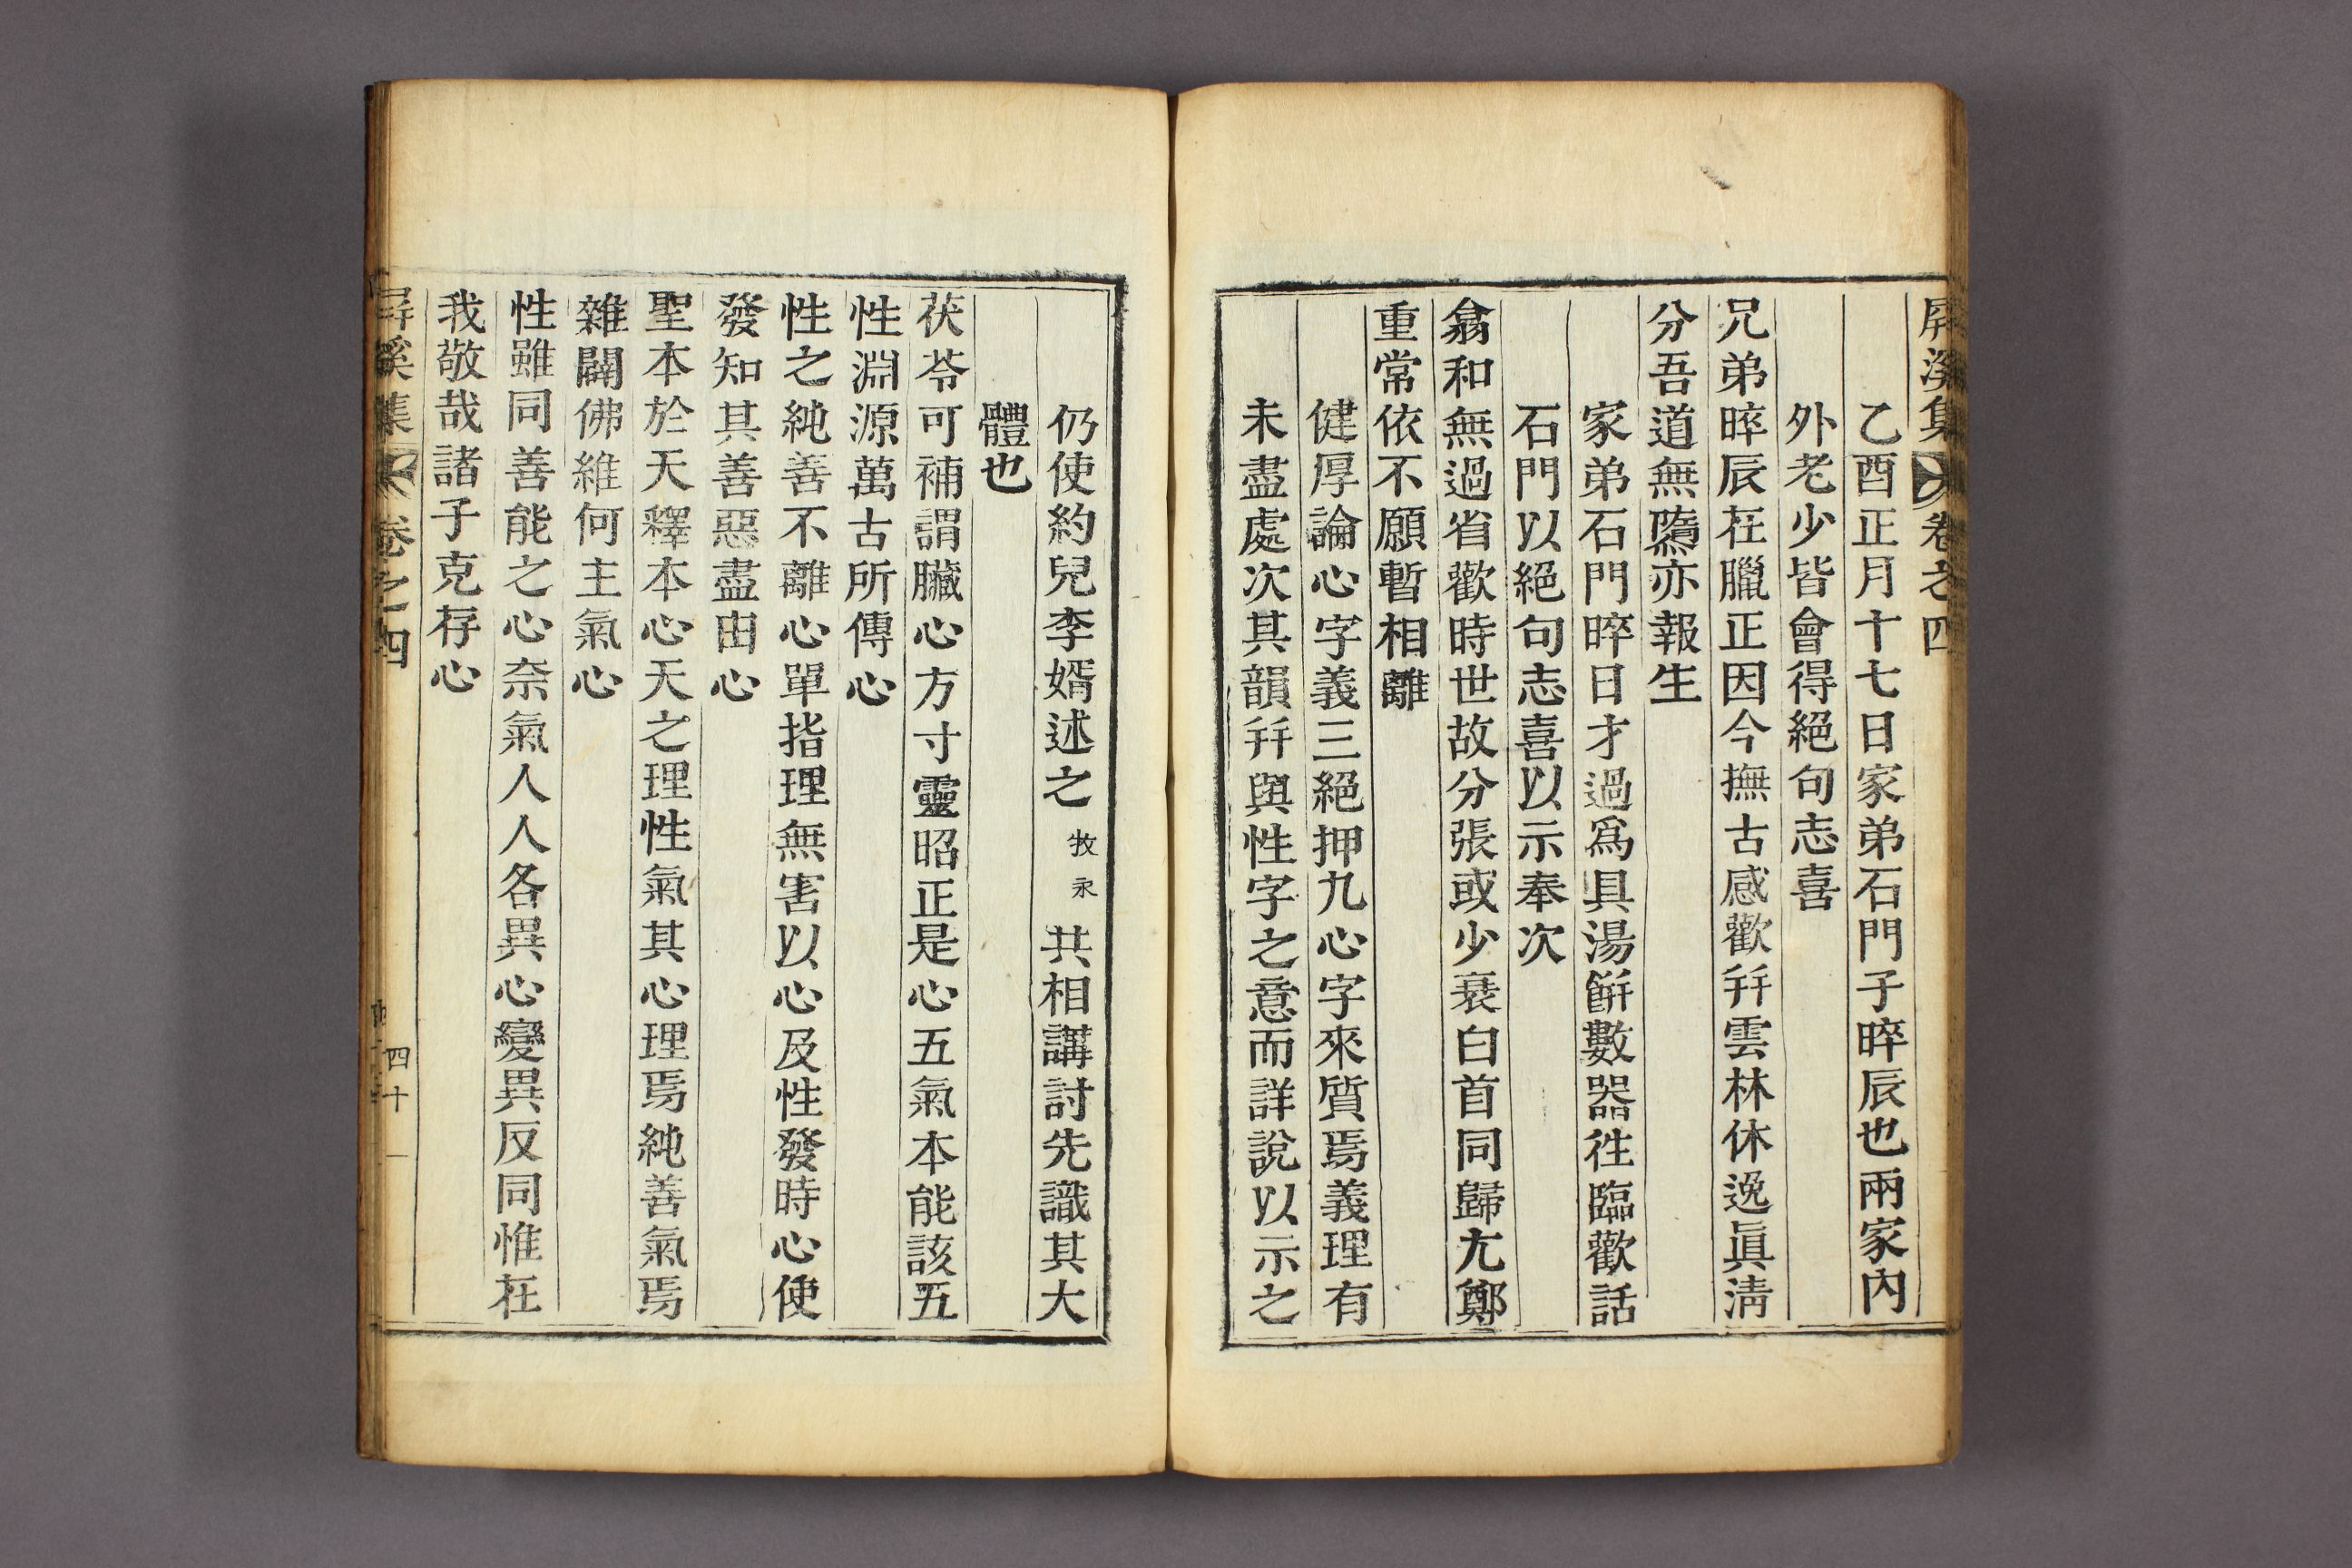 屏溪集 卷之四
乙酉正月十七日家弟石門子晬辰也兩家內
外老少皆會得絕句志喜
兄弟晬辰在臘正因今撫古感歡幷雲林休逸眞淸
分吾道無隳亦報生
家弟石門晬日才過爲具湯餠數器徃臨歡話
石門以絕句志喜以示奉次
翕和無過省歡時世故分張或少衰白首同歸尢鄭
重常依不願暫相離
健厚論心字義三絕押九心字來質焉義理有
未盡處次其韻幷與性字之意而詳說以示之
仍使約兒李婿述之 牧永 共相講討先識其大
體也
茯苓可補謂臟心方寸靈昭正是心五氣本能該五
性淵源萬古所傳心
性之純善不離心單指理無害以心及性發時心使
發知其善惡盡由心
聖本於天釋本心天之理性氣其心理焉純善氣焉
雜闢佛維何主氣心
性雖同善能之心奈氣人人各異心變異反同惟在
我敬哉諸子克存心
屏溪集 卷之四 四十一